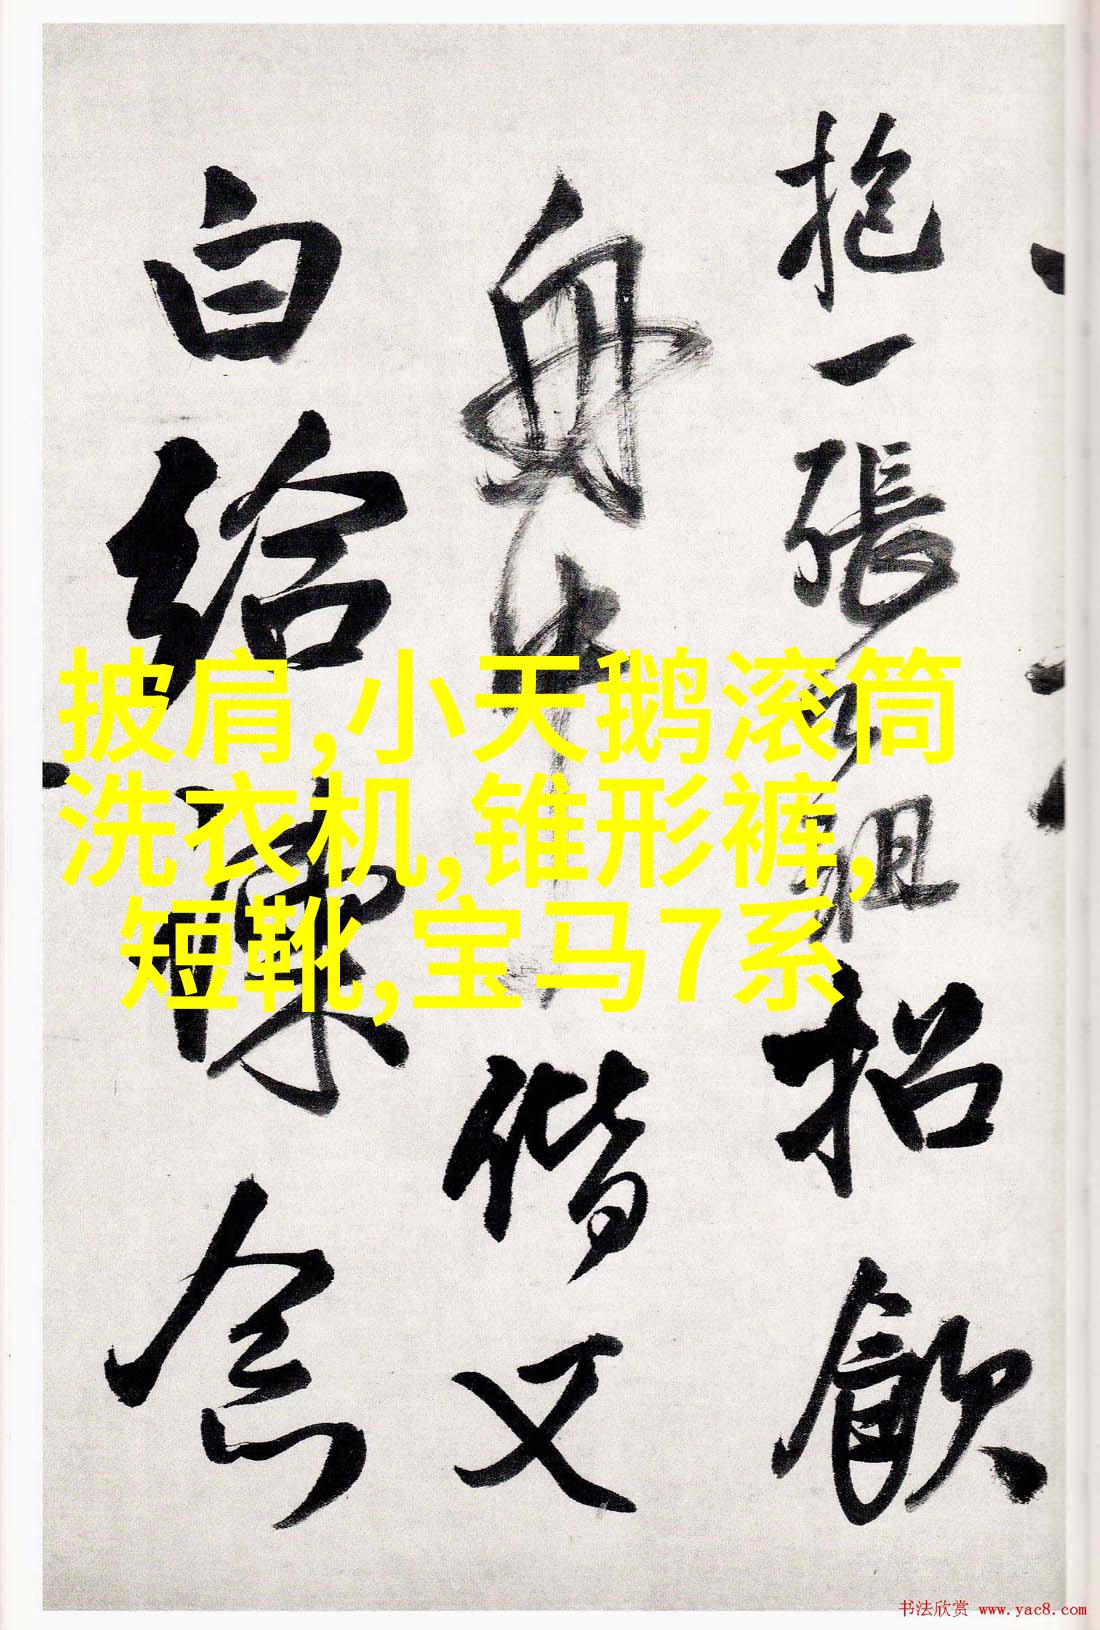 抱一張
招飲
舟中
偕又
白給
念
披肩,小天鹅滚筒
洗衣机,锥形裤,
短靴,宝马7系
书法欣赏 www.yac8.com